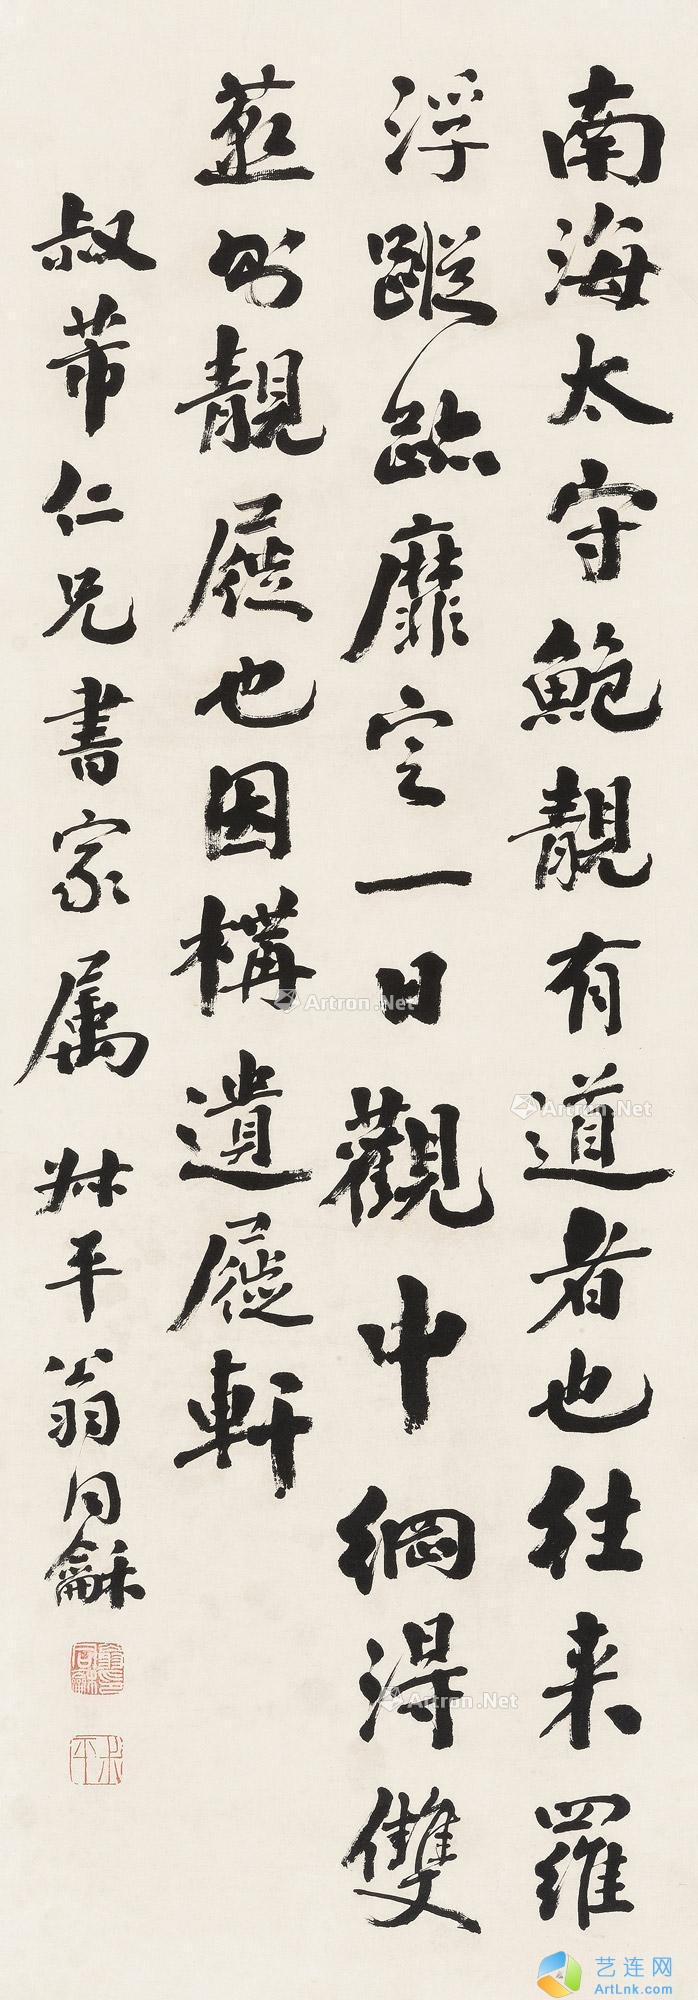 南海太守鮑靚有道者也往来羅
浮蹤跡靡定一日觀中網得雙
燕則靚屣也因構遺屣軒
叔芾仁兄書家属 尗平翁同龢
翁同龢印
尗平
Artron.Net
Artron.Net
Artron.Net
艺连网
ArtLnk.com